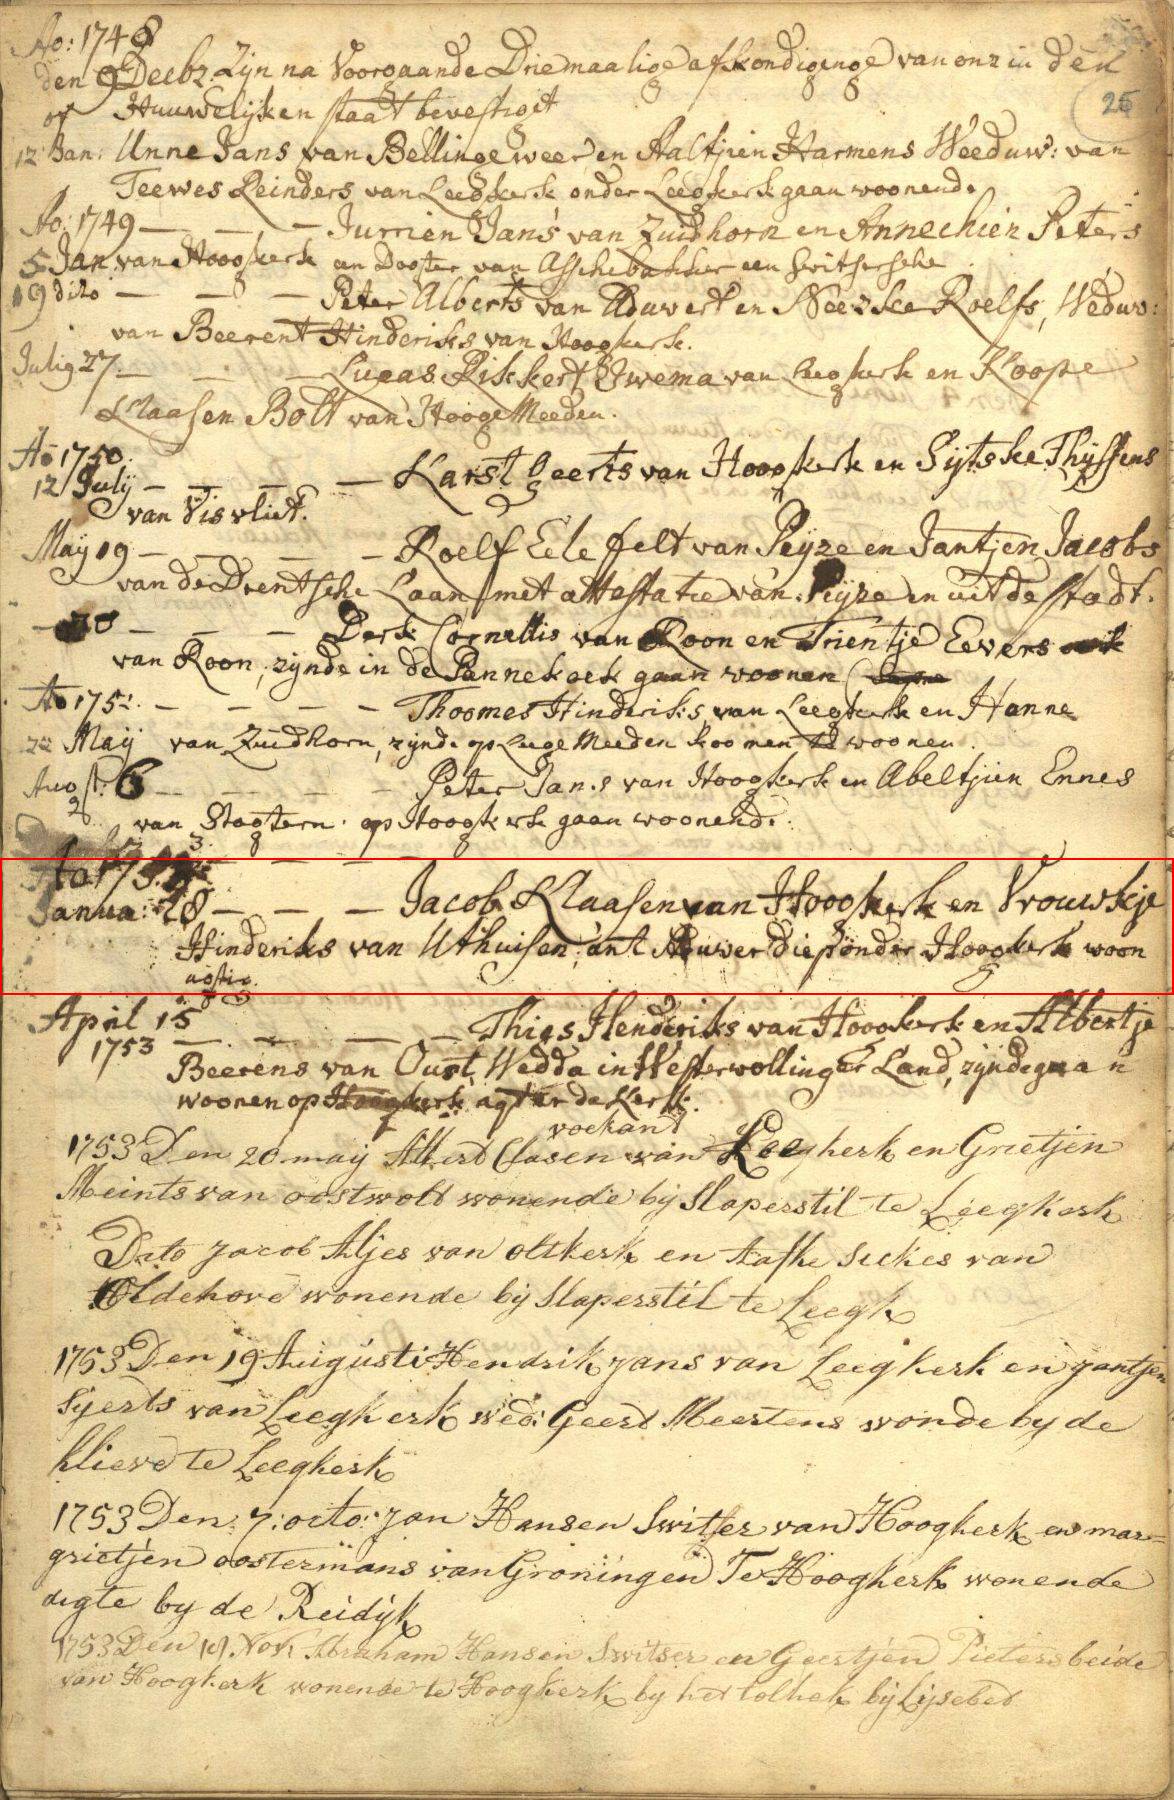 Ao: 1748
den 9 Decbr. Zijn na Voorgaande Driemaalige afkondiginge van onz in den
Huuwelijken staat bevestiget
25
12 Jan: Unne Jans van Bellingeweer en Aaltjien Harmens Weeduw: van
Teewes Reinders van Leegkerk onder Leegkerk gaan woonende
Ao: 1749 — — — Jurrien Jans van Zuidhorn en Annechien Peters
5 Jan van Hoogkerk an Dooster van Asschebakker een Switsersche
19 dito — — — Peter Alberts van Aduwert en Neeske Roelfs, Weduw:
van Beerent Hinderiks van Hoogkerk.
Julij 27 — — — Lucas Rikkert Ewema van Leegkerk en Koope
Klaasen Bolt van Hooge Meeden.
Ao 1750.
12 July — — — Karst Geerts van Hoogkerk en Sijtske Thijssens
van Visvliet.
Maij 19 — — — Roelf Eelefelt van Peijze en Jantjen Jacobs
van de Drentsche Laan met attestatie van Peijze en uit de stadt.
— 20 — — — Derk Cornellis van Roon en Trientje Eevers
van Roon, zijnde in de Pannekoek gaan woonen
Ao 1752. — — — — Thoomes Hinderiks van Leegkerk en Hanne
22 Maij van Zuidhorn, zijnde op Leege Meeden koomen te woonen.
Augst. 6 — — — — Peter Jans van Hoogkerk en Abeltjien Ennes
van Stogtern. op Hoogkerk gaan woonende.
Ao 1753. — — —
Janua: 28 — — — Jacob Klaasen van Hoogkerk en Vrouwkje
Hinderiks van Uthuisen, ant Aduwerdiep onder Hoogkerk woon
agtig.
April 15 — — — — Thies Henderiks van Hoogkerk en Albertje
1753
Beerens van Oust, Wedda in Westerwollinger Land, zijnde gaan
woonen op Hoogkerk agter de Kerk.
voekand
1753 Den 20 maij Albert Clasen van Leegkerk en Grietjen
Meints van oostwolt wonende bij Slaperstil te Leegkerk
Dato Jacob Aljes van oltkerk en Aafke Siekes van
Oldehove wonende bij Slaperstil te Leegk
1753 Den 19 Augusti Hendrik Jans van Leegkerk en Jantjen
Sjerts van Leegkerk wed: Geert Meertens wonde by de
Klieve te Leegkerk
1753 Den 7: octo: Jan Hansen Switser van Hoogkerk en mar=
grietjen oostermans van Groningen Te Hoogkerk wonende
digte by de Reidijk
1753 Den 18 Nov: Abraham Hansen Switser en Geertjen Pieters beide
van Hoogkerk wonende te Hoogkerk by het tolhek bij Lijsebet